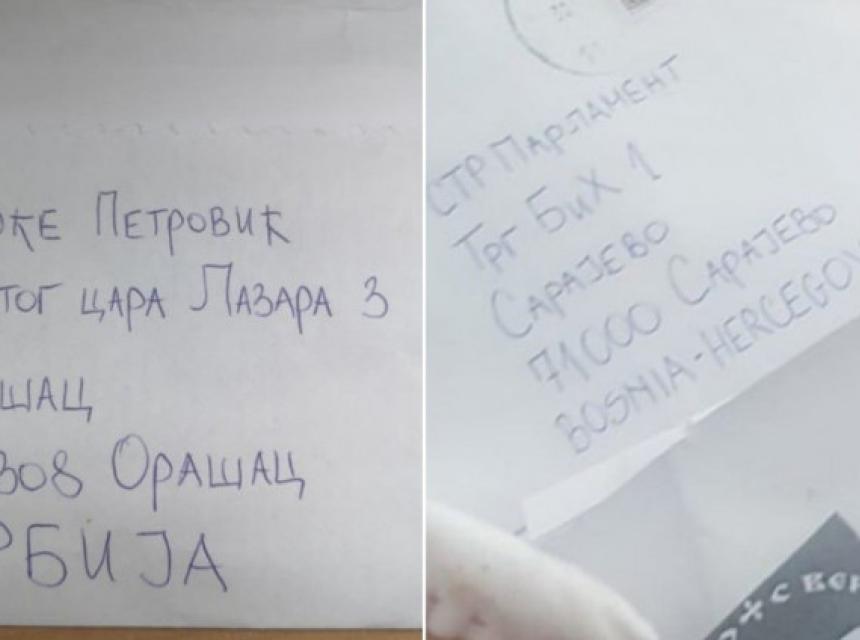 ЂЕ ПЕТРОВИЋ
ТОГ ЦАРА ЛАЗАРА 3
ШАЦ
308 ОРАШАЦ
РБИЈА
СТР ПАРЛАМЕНТ
ТРГ БИХ 1
САРАЈЕВО
71000 САРАЈЕВО
BOSNIA-HERCEGOV